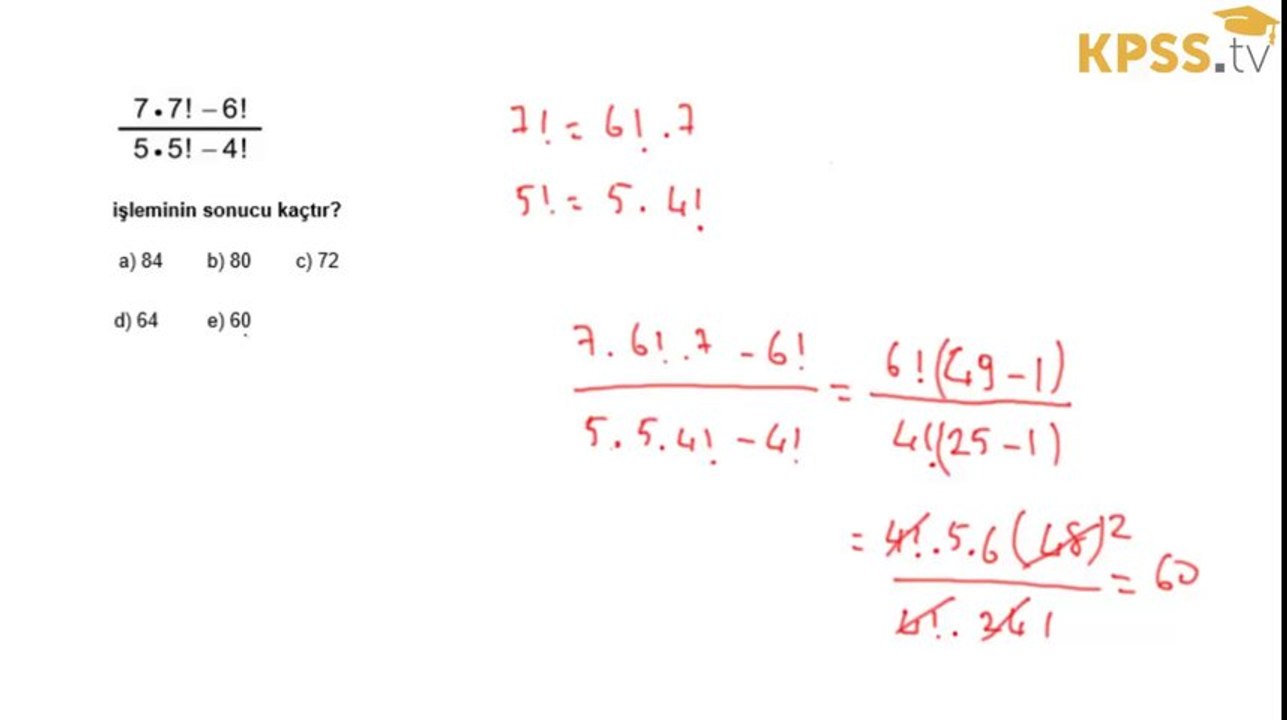 KPSS.tv
7.7! – 6!
5.5! – 4!
işleminin sonucu kaçtır?
a) 84 b) 80 c) 72
d) 64 e) 60
7! = 6! . 7
5! = 5 . 4!
7 . 6! . 7 - 6! = 6! (49 - 1)
5 . 5 . 4! - 4! 4! (25 - 1)
= 4! . 5 . 6 (48) 2 = 60
4! . 24 1